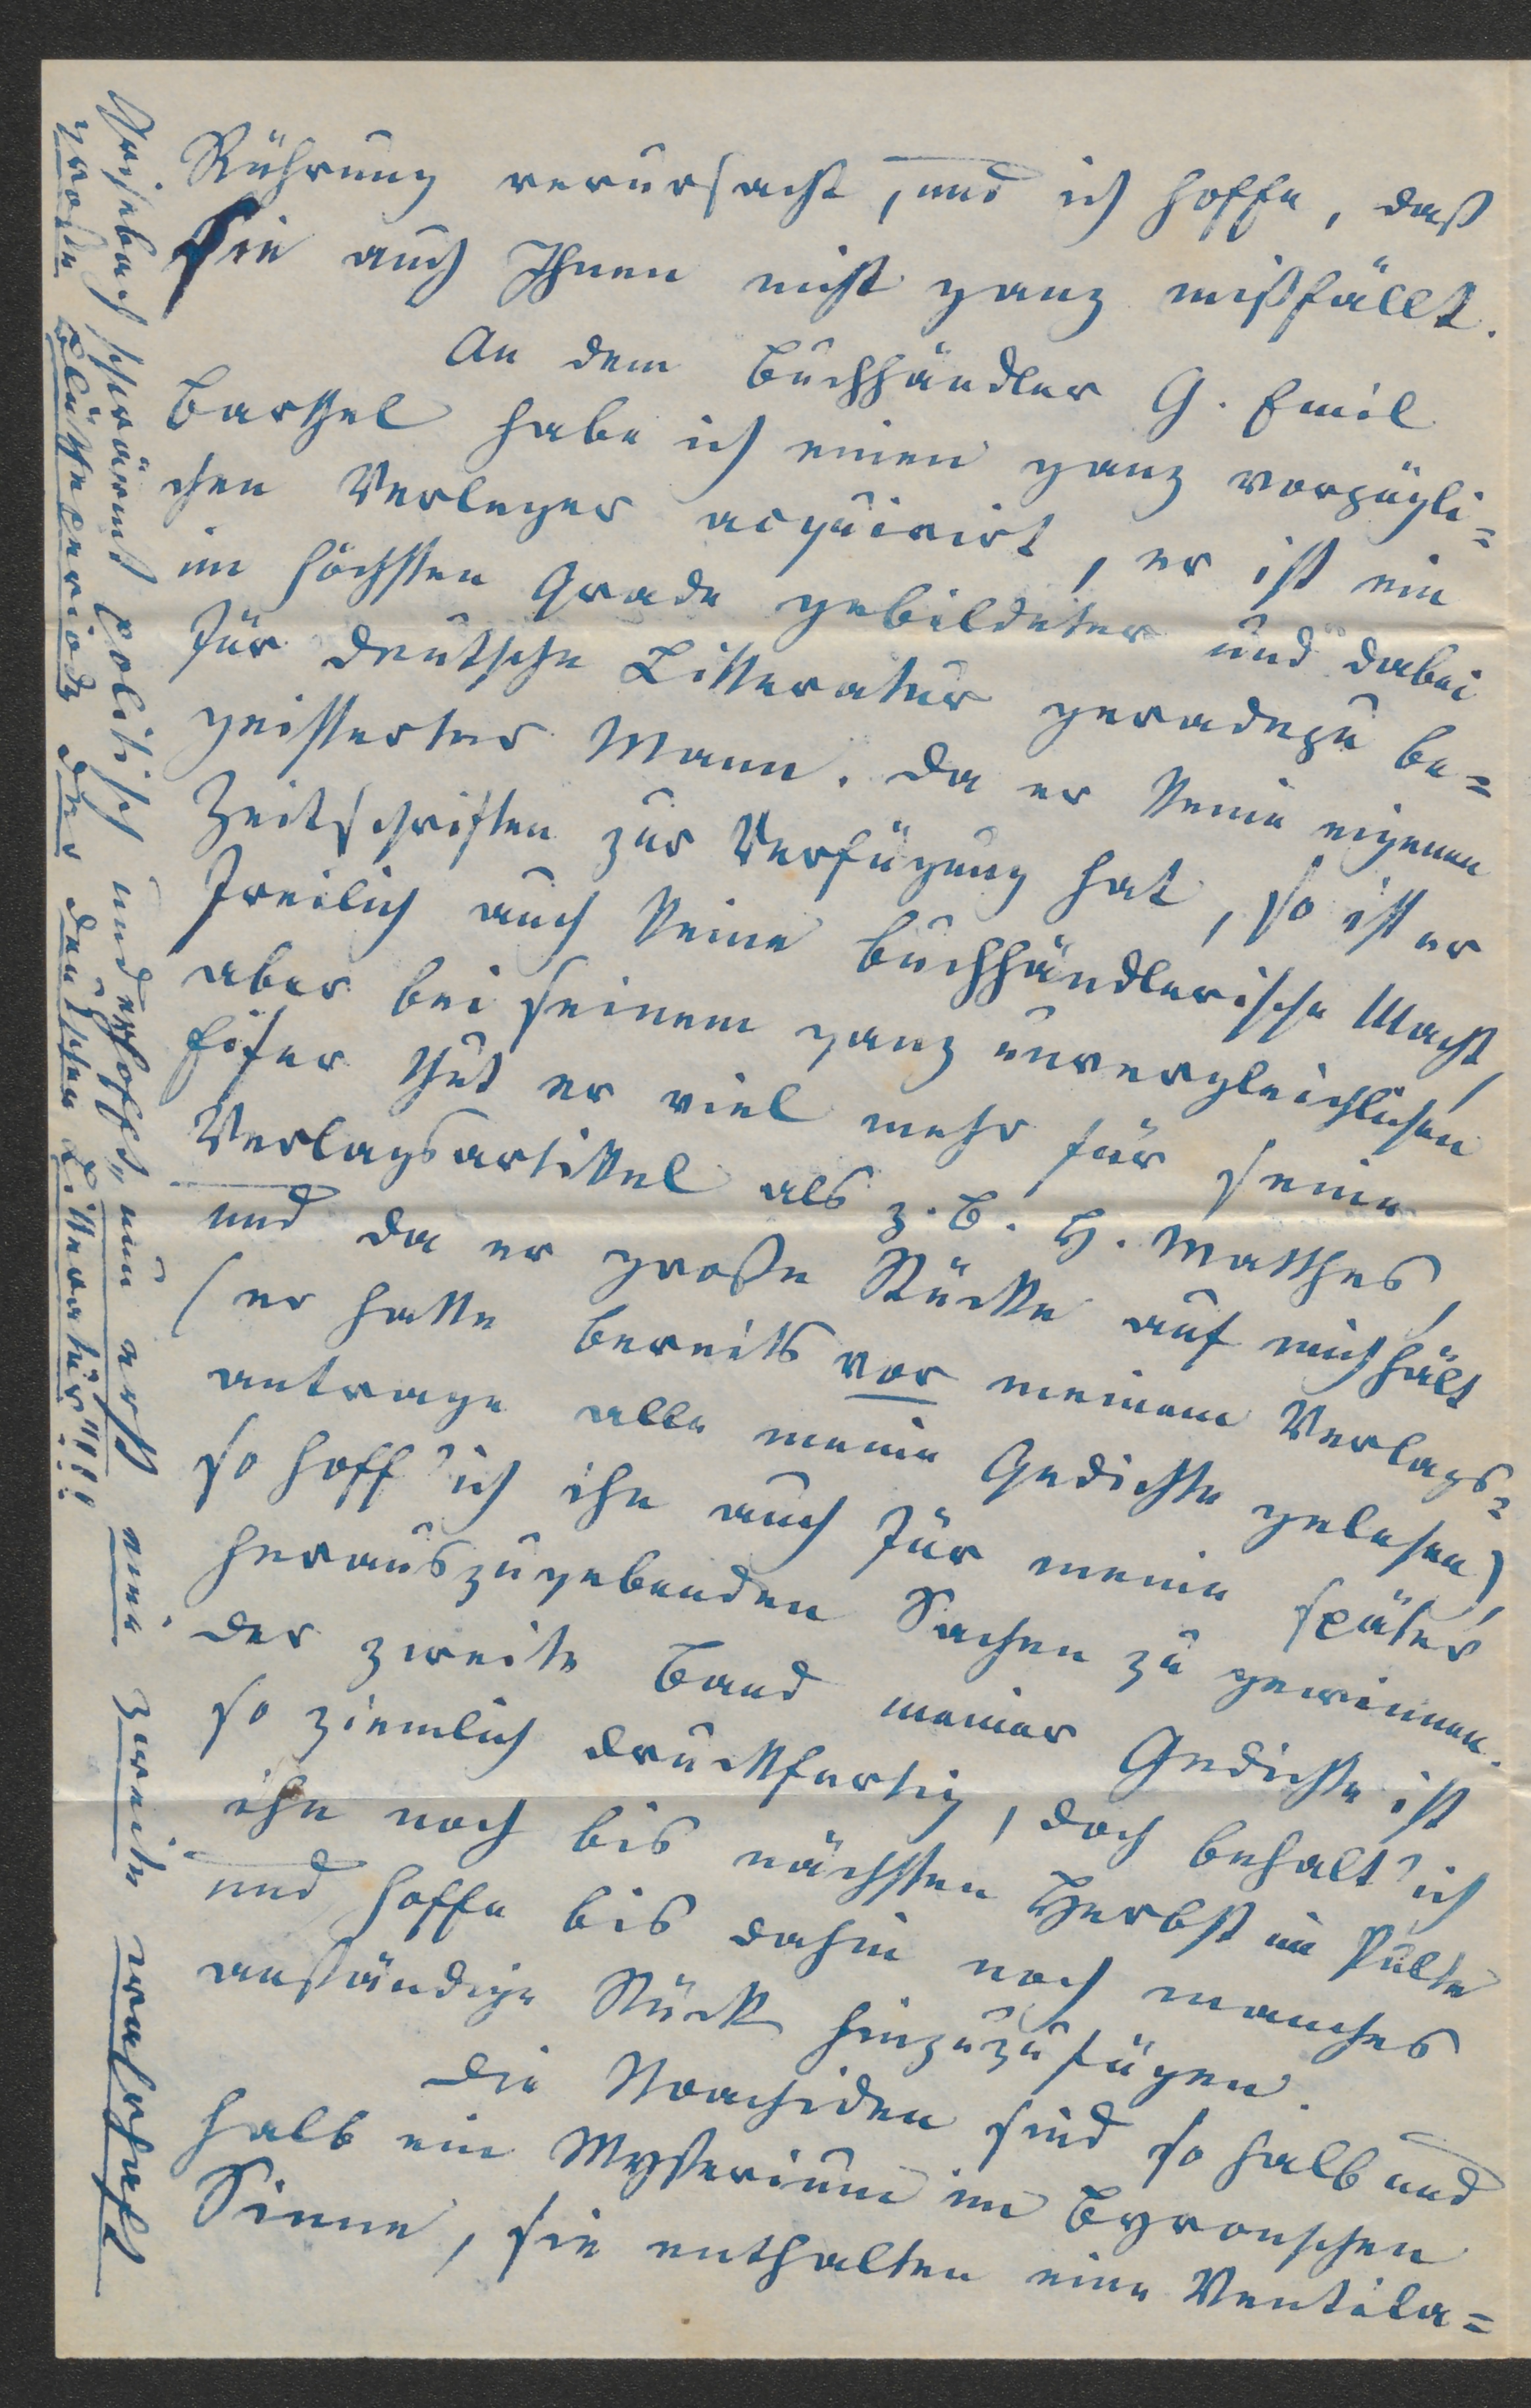 Rührung verursacht, und ich hoffe, daß
sie auch Ihnen nicht ganz mißfällt.
An dem Buchhändler G. Emil
Barthel habe ich einen ganz vorzügli=
chen Verleger acquirirt, er ist ein
im höchsten Grade gebildeter und dabei
für deutsche Litteratur geradezu be=
geisterter Mann. Da er keine eigenen
Zeitschriften zur Verfügung hat, so ist er
freilich auch keine buchhändlerische Macht,
aber bei seinem ganz unvergleichlichen
Eifer thut er viel mehr für seine
Verlagsartikel als z. B. H. Matthes,
und da er große Stücke auf mich hält
(er hatte bereits vor meinem Verlags=
antrage alle meine Gedichte gelesen)
so hoff' ich ihn auch für meine später
herauszugebenden Sachen zu gewinnen.
Der zweite Band meiner Gedichte ist
so ziemlich druckfertig, doch behalt' ich
ihn noch bis nächsten Herbst im Pulte
und hoffe bis dahin noch manches
anständige Stück hinzuzufügen.
Die Noachiden sind so halb und
halb ein Mysterium im Byronschen
Sinne, sie enthalten eine Ventila=
schwärmt politisch und erhofft „nun erst eine zweite wahrhaft
große Blütheperiode der deutschen Litteratur"!!!